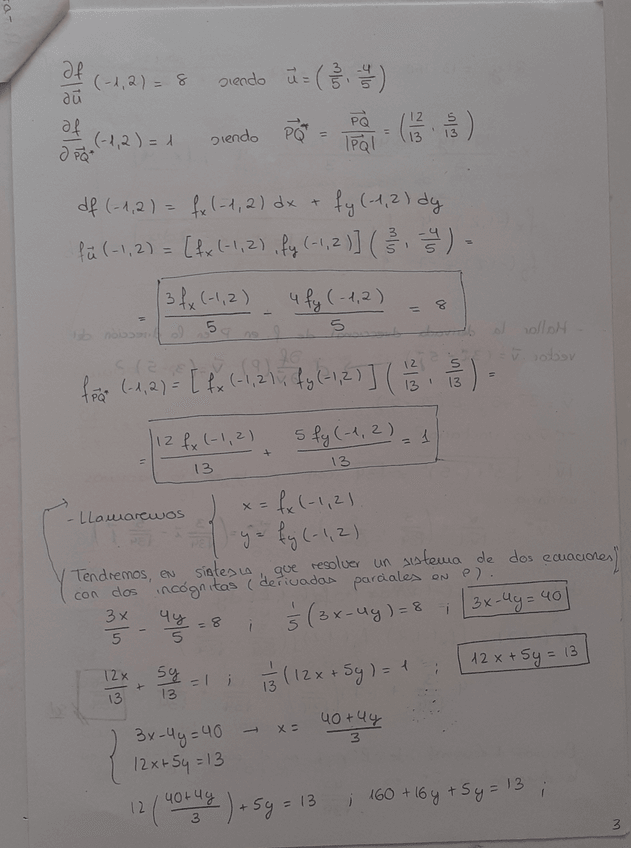 ∂f/∂u⃗ (-1,2) = 8 siendo u⃗ = (3/5, -4/5)
∂f/∂PQ⃗* (-1,2) = 1 siendo PQ⃗* = PQ⃗/|PQ⃗| = (12/13, 5/13)
df(-1,2) = fx(-1,2) dx + fy(-1,2) dy
fu⃗(-1,2) = [fx(-1,2), fy(-1,2)] (3/5, -4/5) =
= 3fx(-1,2)/5 - 4fy(-1,2)/5 = 8
fPQ⃗* (-1,2) = [fx(-1,2), fy(-1,2)] (12/13, 5/13) =
= 12 fx(-1,2)/13 + 5 fy(-1,2)/13 = 1
- Llamaremos { x = fx(-1,2)
y = fy(-1,2)
(Tendremos, en síntesis, que resolver un sistema de dos ecuaciones
con dos incógnitas (derivadas parciales en P).
3x/5 - 4y/5 = 8 ; 1/5 (3x-4y) = 8 ; 3x-4y = 40
12x/13 + 5y/13 = 1 ; 1/13 (12x + 5y) = 1 ; 12x + 5y = 13
{ 3x-4y = 40 → x = 40+4y/3
12x+5y = 13
12 (40+4y/3) + 5y = 13 ; 160 + 16y + 5y = 13 ;
3